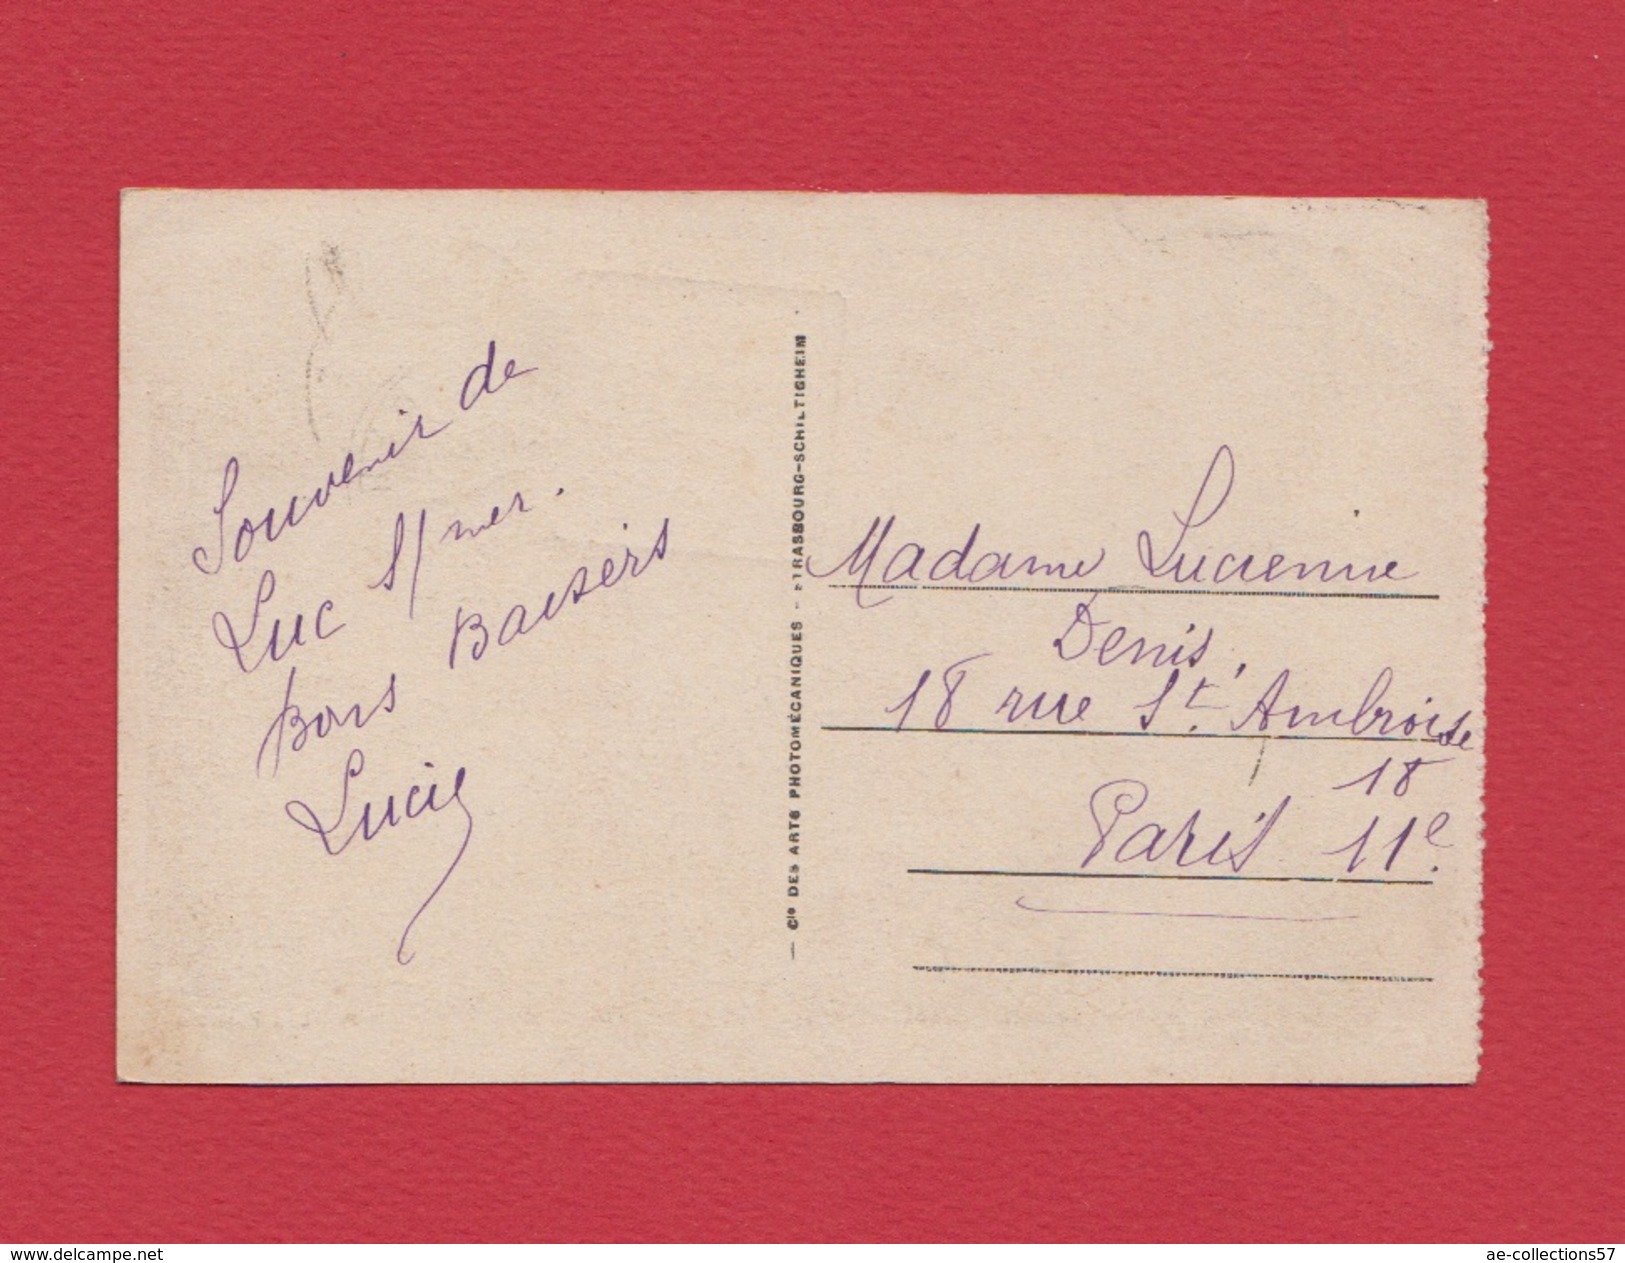 Souvenir de
Luc s/mer.
Bons Baisers
Lucie
— Cie DES ARTS PHOTOMÉCANIQUES - STRASBOURG-SCHILTIGHEIM
Madame Lucienne
Denis,
18 rue St. Ambroise
18
Paris 11e.
www.delcampe.net
ae-collections57